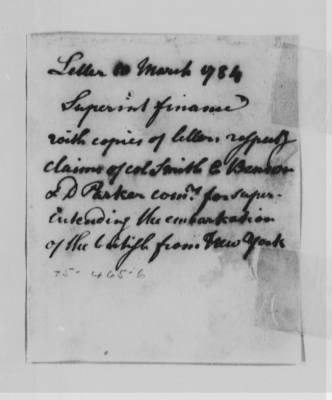 Letter 10 March 1784
Superint finance
with copies of letters respectg
claims of col Smith E Benson
& D Parker comrs. for super-
intending the embarkation
of the british from New York